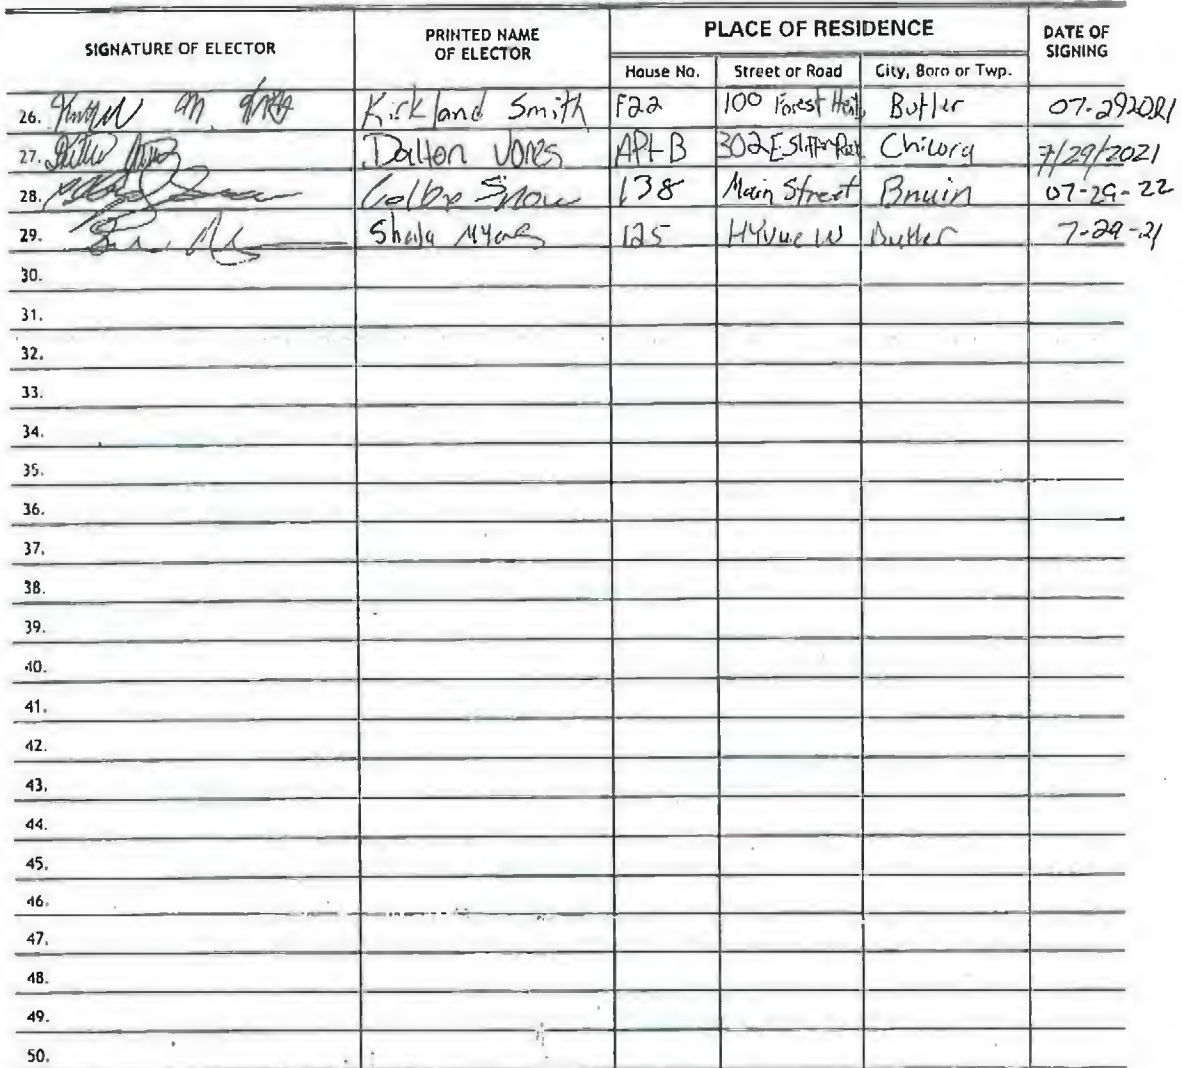 SIGNATURE OF ELECTOR PRINTED NAME OF ELECTOR PLACE OF RESIDENCE DATE OF SIGNING
House No. Street or Road City, Boro or Twp.
26. Kirkland Smith F22 100 Forest Butler 07-292021
27. Dalton Jones APt B 302 E Chicora 7/29/2021
28. Colby Snow 138 Main Street Bruin 07-29-22
29. 125 Butler 7-29-21
30.
31.
32.
33.
34.
35.
36.
37.
38.
39.
40.
41.
42.
43.
44.
45.
46.
47.
48.
49.
50.